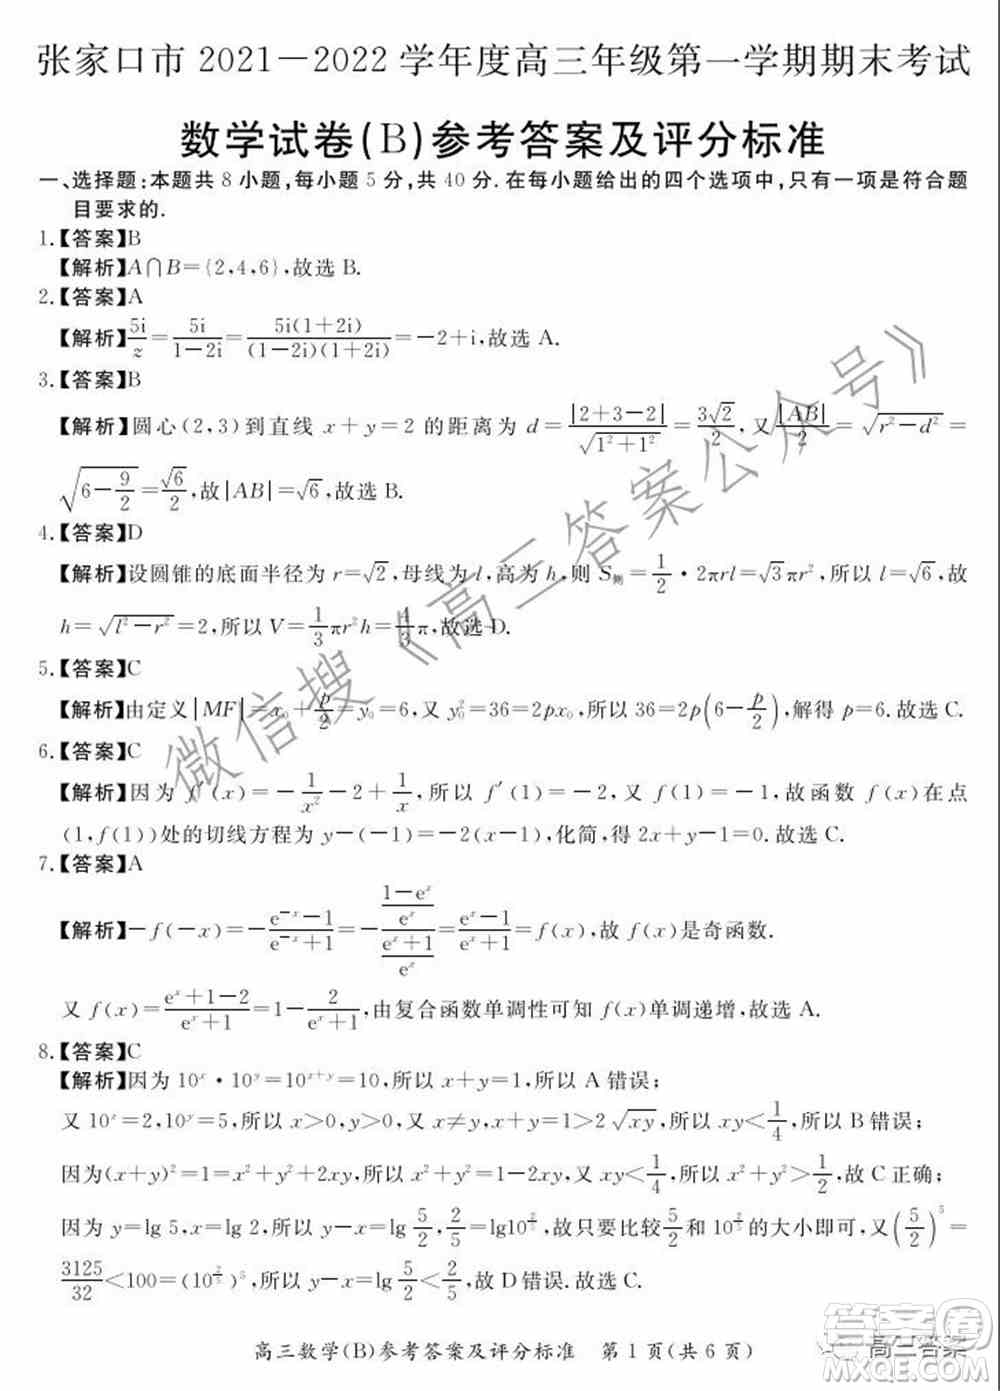 张家口市 2021—2022 学年度高三年级第一学期期末考试
数学试卷(B)参考答案及评分标准
一、选择题:本题共 8 小题,每小题 5 分,共 40 分.在每小题给出的四个选项中,只有一项是符合题
目要求的.
1.【答案】B
【解析】A∩B={2,4,6},故选 B.
2.【答案】A
【解析】5i/z=5i/(1-2i)=5i(1+2i)/((1-2i)(1+2i))=-2+i,故选 A.
3.【答案】B
【解析】圆心(2,3)到直线 x+y=2 的距离为 d=|2+3-2|/√(1²+1²)=3√2/2,又|AB|/2=√(r²-d²)=
√(6-9/2)=√6/2,故|AB|=√6,故选 B.
4.【答案】D
【解析】设圆锥的底面半径为 r=√2,母线为 l,高为 h,则 S侧=1/2·2πrl=√3πr²,所以 l=√6,故
h=√(l²-r²)=2,所以 V=1/3πr²h=4/3π,故选 D.
5.【答案】C
【解析】由定义|MF|=x₀+p/2=y₀=6,又 y₀²=36=2px₀,所以 36=2p(6-p/2),解得 p=6.故选 C.
6.【答案】C
【解析】因为 f′(x)=-1/x²-2+1/x,所以 f′(1)=-2,又 f(1)=-1,故函数 f(x)在点
(1,f(1))处的切线方程为 y-(-1)=-2(x-1),化简,得 2x+y-1=0.故选 C.
7.【答案】A
【解析】-f(-x)=-(e⁻ˣ-1)/(e⁻ˣ+1)=-((1-eˣ)/eˣ)/((eˣ+1)/eˣ)=(eˣ-1)/(eˣ+1)=f(x),故 f(x)是奇函数.
又 f(x)=(eˣ+1-2)/(eˣ+1)=1-2/(eˣ+1),由复合函数单调性可知 f(x)单调递增,故选 A.
8.【答案】C
【解析】因为 10ˣ·10ʸ=10ˣ⁺ʸ=10,所以 x+y=1,所以 A 错误;
又 10ˣ=2,10ʸ=5,所以 x>0,y>0,又 x≠y,x+y=1>2√(xy),所以 xy<1/4,所以 B 错误;
因为(x+y)²=1=x²+y²+2xy,所以 x²+y²=1-2xy,又 xy<1/4,所以 x²+y²>1/2,故 C 正确;
因为 y=lg 5,x=lg 2,所以 y-x=lg 5/2,2/5=lg10^(2/5),故只要比较5/2和 10^(2/5)的大小即可,又(5/2)⁵=
3125/32<100=(10^(2/5))⁵,所以 y-x=lg 5/2<2/5,故 D 错误.故选 C.
高三数学(B)参考答案及评分标准 第 1 页(共 6 页)
微信搜《高三答案公众号》
答案圈
高三答案